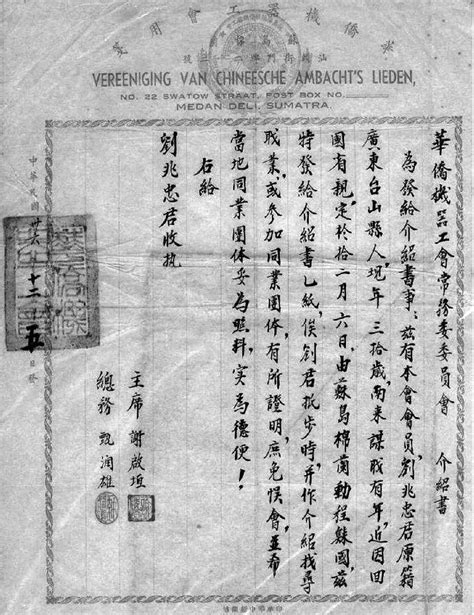 華僑機器工會用箋
汕頭街門牌二二號
VEREENIGING VAN CHINEESCHE AMBACHT'S LIEDEN,
NO. 22 SWATOW STRAAT, POST BOX NO.
MEDAN DELI, SUMATRA.
華僑機器工會常務委委員會 介紹書
為發給介紹書事：茲有本會會員，劉兆忠君原籍
廣東台山縣人，現年三拾歲，南來謀職有年，近因回
國省親，定於拾二月六日，由蘇島棉蘭動程歸國，茲
特發給介紹書乙紙，俟劉君抵步時，并作介紹找尋
職業，或參加同業團体，有所證明，庶免悮會並希
當地同業團体妥為照料，实為德便！
右給
劉兆忠君收执
主席 謝啟垣
總務 甄潤雄
中華民國廿六 十二 五日發